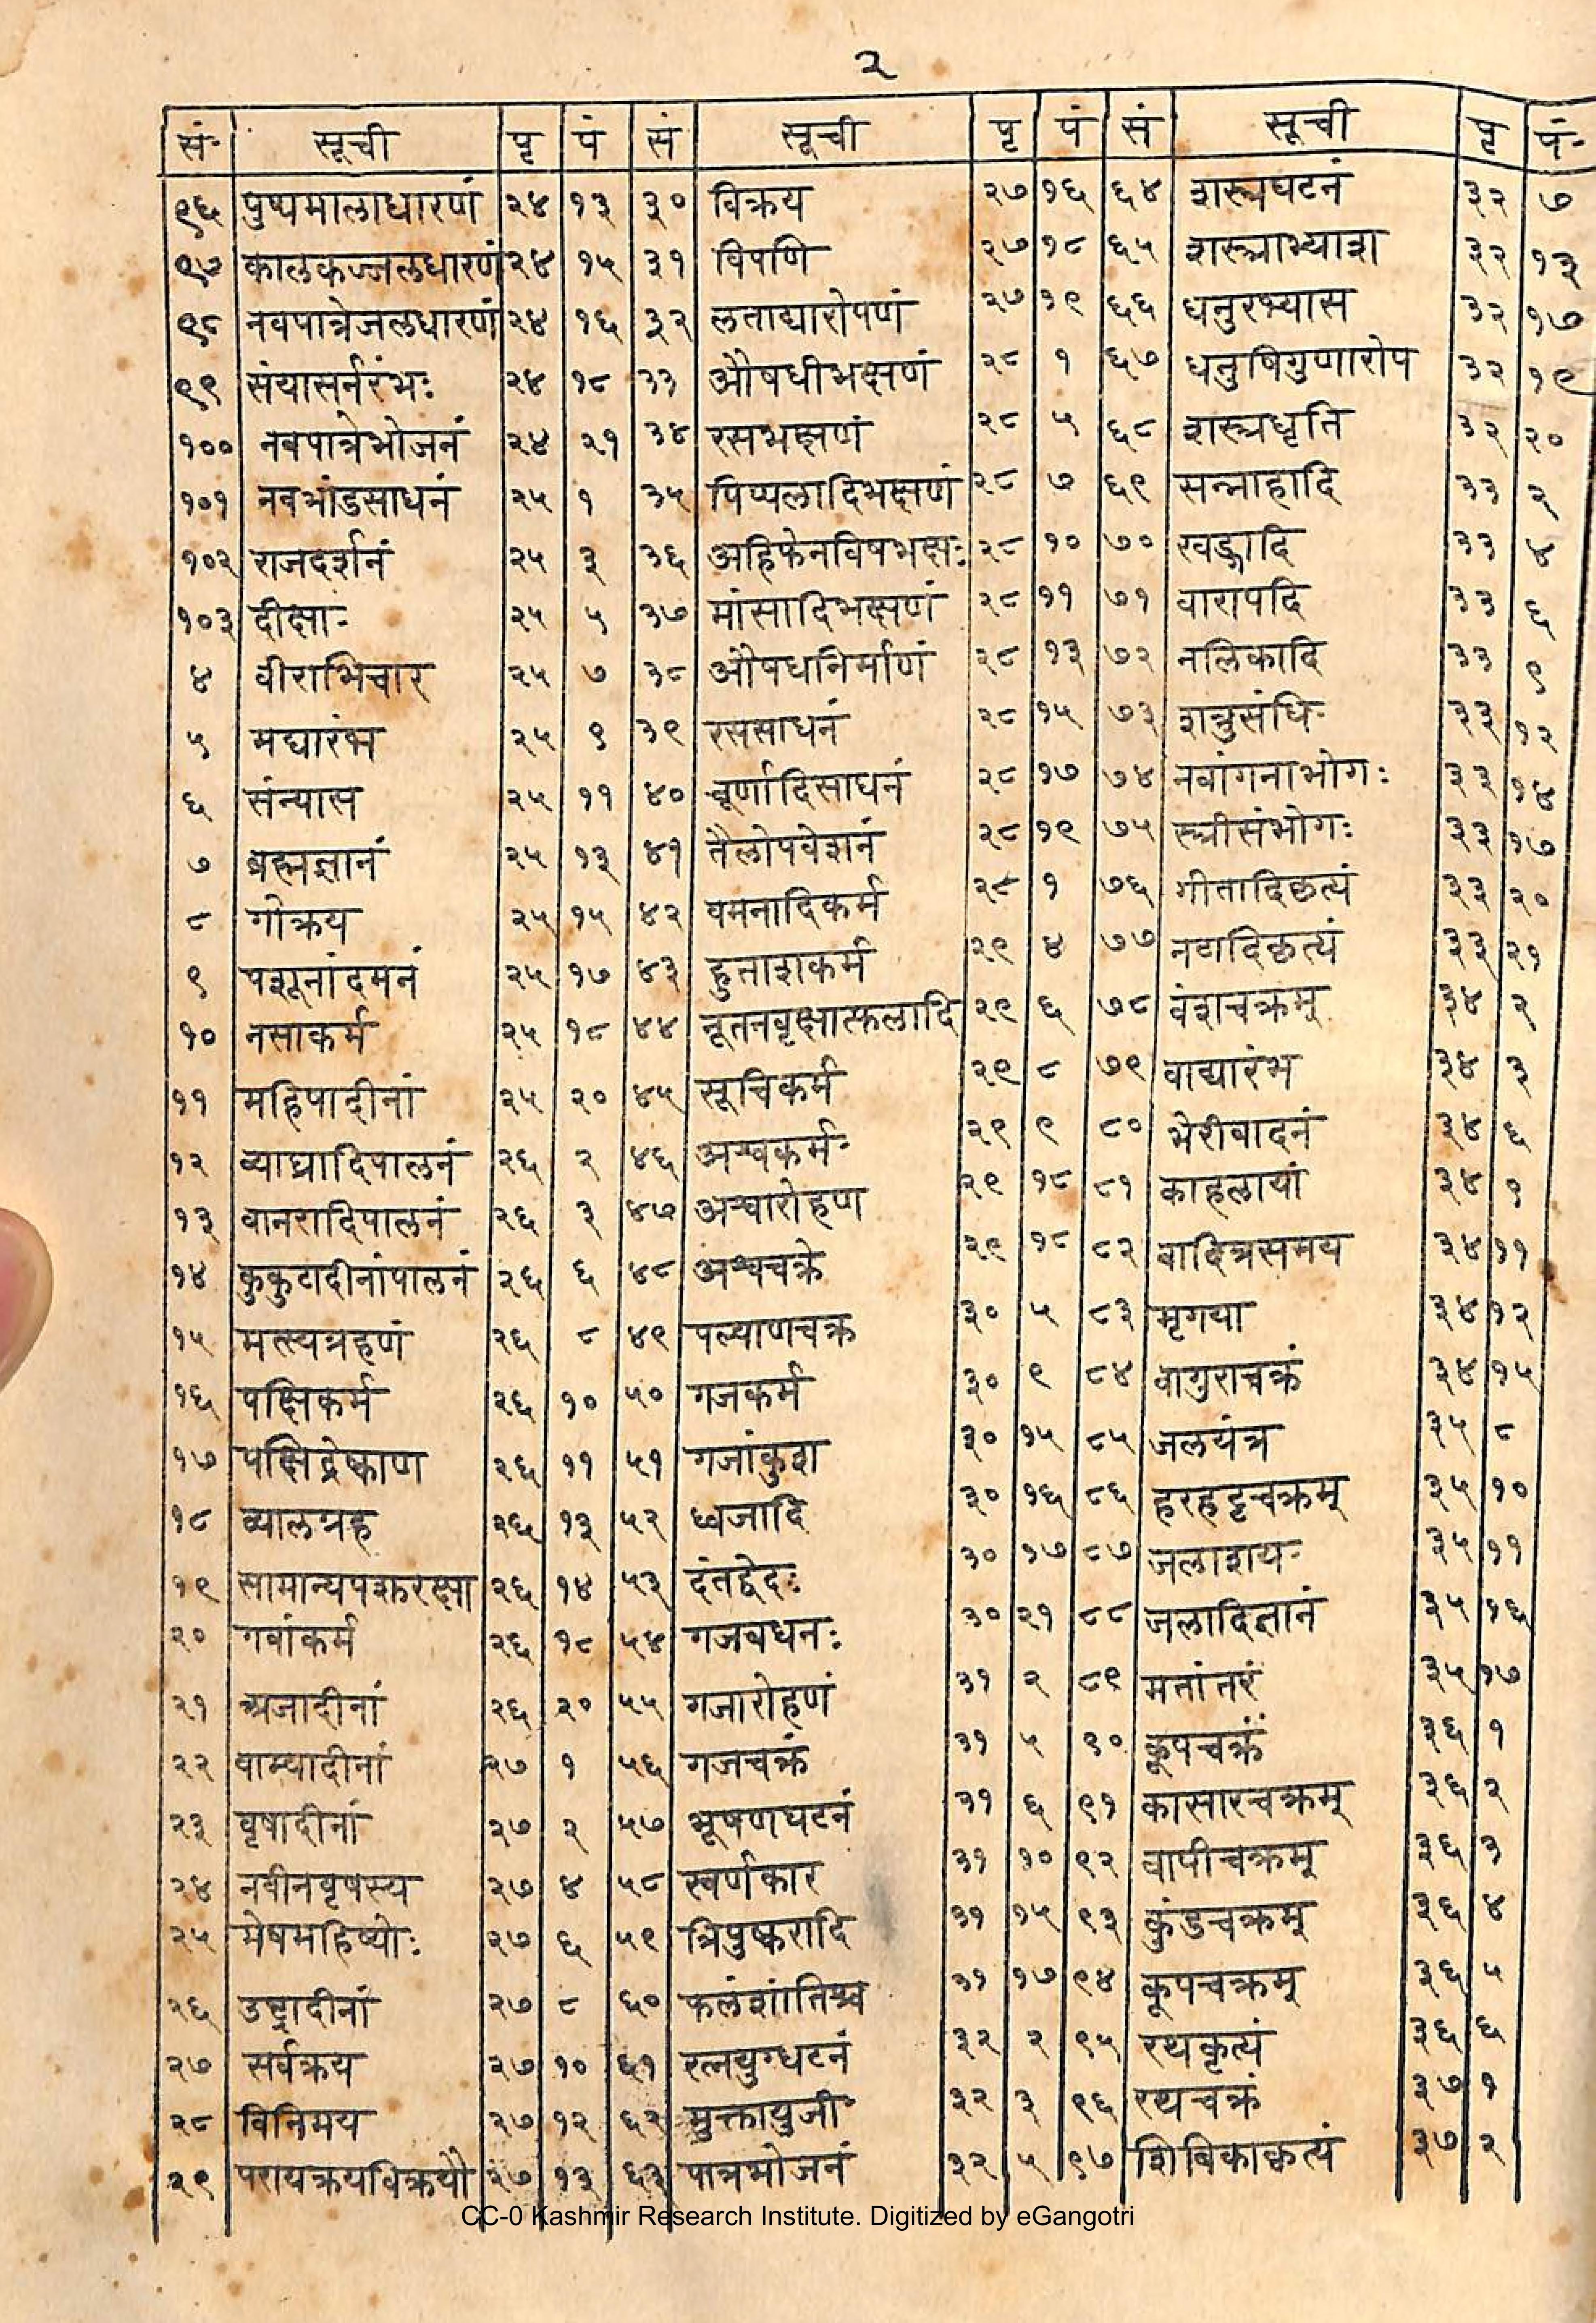 २
सं॰ सूची पृ पं सं सूची पृ पं सं सूची पृ पं॰
९६ पुष्पमालाधारणं २४ १३ ३० विक्रय २७ १६ ६४ शस्त्रघटनं ३२ ७
९७ कालकज्जलधारणं २४ १५ ३१ विपणि २७ १८ ६५ शस्त्राभ्याश ३२ १३
९८ नवपात्रेजलधारणं २४ १६ ३२ लताद्यारोपणं २७ १९ ६६ धनुरभ्यास ३२ १७
९९ संयासर्नरंभः २४ १८ ३३ औषधीभक्षणं २८ १ ६७ धनुषिगुणारोप ३२ १९
१०० नवपात्रेभोजनं २४ २१ ३४ रसभक्षणं २८ ५ ६८ शस्त्रधृति ३२ २०
१०१ नवभांडसाधनं २५ १ ३५ पिप्पलादिभक्षणं २८ ७ ६९ सन्नाहादि ३३ २
१०२ राजदर्शनं २५ ३ ३६ अहिफेनविषभक्षः २८ १० ७० खड्गादि ३३ ४
१०३ दीक्षा॰ २५ ५ ३७ मांसादिभक्षणं २८ ११ ७१ वारापदि ३३ ६
४ वीराभिचार २५ ७ ३८ औषधनिर्माणं २८ १३ ७२ नलिकादि ३३ ९
५ मद्यारंभ २५ ९ ३९ रससाधनं २८ १५ ७३ शत्रुसंधि॰ ३३ १२
६ संन्यास २५ ११ ४० चूर्णादिसाधनं २८ १७ ७४ नवांगनाभोगः ३३ १४
७ ब्रह्मज्ञानं २५ १३ ४१ तैलोपवेशनं २८ १९ ७५ स्त्रीसंभोगः ३३ १७
८ गोक्रय २५ १५ ४२ वमनादिकर्म २८ १ ७६ गीतादिकृत्यं ३३ २०
९ पशूनांदमनं २५ १७ ४३ हुताशकर्म २९ ४ ७७ नटादिकृत्यं ३३ २१
१० नसाकर्म २५ १८ ४४ नूतनवृक्षात्फलादि २९ ६ ७८ वंशचक्रम् ३४ २
११ महिषादीनां २५ २० ४५ सूचिकर्म २९ ८ ७९ वाद्यारंभ ३४ ३
१२ व्याघ्रादिपालनं २६ २ ४६ अश्वकर्म॰ २९ ९ ८० भेरीवादनं ३४ ६
१३ वानरादिपालनं २६ ३ ४७ अश्वारोहण २९ १८ ८१ काहलायां ३४ ९
१४ कुकुटादीनांपालनं २६ ६ ४८ अश्वचक्रे २९ १८ ८२ वादित्रसमय ३४ ११
१५ मत्स्यग्रहणं २६ ८ ४९ पल्याणचक्र ३० ५ ८३ मृगया ३४ १२
१६ पक्षिकर्म २६ १० ५० गजकर्म ३० ९ ८४ वागुराचक्रं ३४ १५
१७ पक्षिद्रेष्काण २६ ११ ५१ गजांकुश ३० १५ ८५ जलयंत्र ३५ ८
१८ व्यालग्रह २६ १३ ५२ ध्वजादि ३० १६ ८६ हरहट्टचक्रम् ३५ १०
१९ सामान्यपशुरक्षा २६ १४ ५३ दंतछेदः ३० १७ ८७ जलाशय॰ ३५ ११
२० गवांकर्म २६ १८ ५४ गजबधनः ३० २१ ८८ जलादिज्ञानं ३५ १६
२१ अजादीनां २६ २० ५५ गजारोहणं ३१ २ ८९ मतांतरं ३५ १७
२२ वाम्यादीनां २७ १ ५६ गजचक्रं ३१ ५ ९० कूपचक्रं ३६ १
२३ वृषादीनां २७ २ ५७ भूषणघटनं ३१ ६ ९१ कासारचक्रम् ३६ २
२४ नवीनवृषस्य २७ ४ ५८ स्वर्णकार ३१ १० ९२ वापीचक्रम् ३६ ३
२५ मेषमहिष्योः २७ ६ ५९ त्रिपुष्करादि ३१ १५ ९३ कुंडचक्रम् ३६ ४
२६ उष्ट्रादीनां २७ ८ ६० फलंशांतिश्च ३१ १७ ९४ कूपचक्रम् ३६ ५
२७ सर्वक्रय २७ १० ६१ रत्नयुग्घटनं ३२ २ ९५ रथकृत्यं ३६ ६
२८ विनिमय २७ १२ ६२ मुक्तायुजी॰ ३२ ३ ९६ रथचक्रं ३७ १
२९ परायक्रयविक्रयौ २७ १३ ६३ पात्रभोजनं ३२ ५ ९७ शिबिकाकृत्यं ३७ २
CC-0 Kashmir Research Institute. Digitized by eGangotri